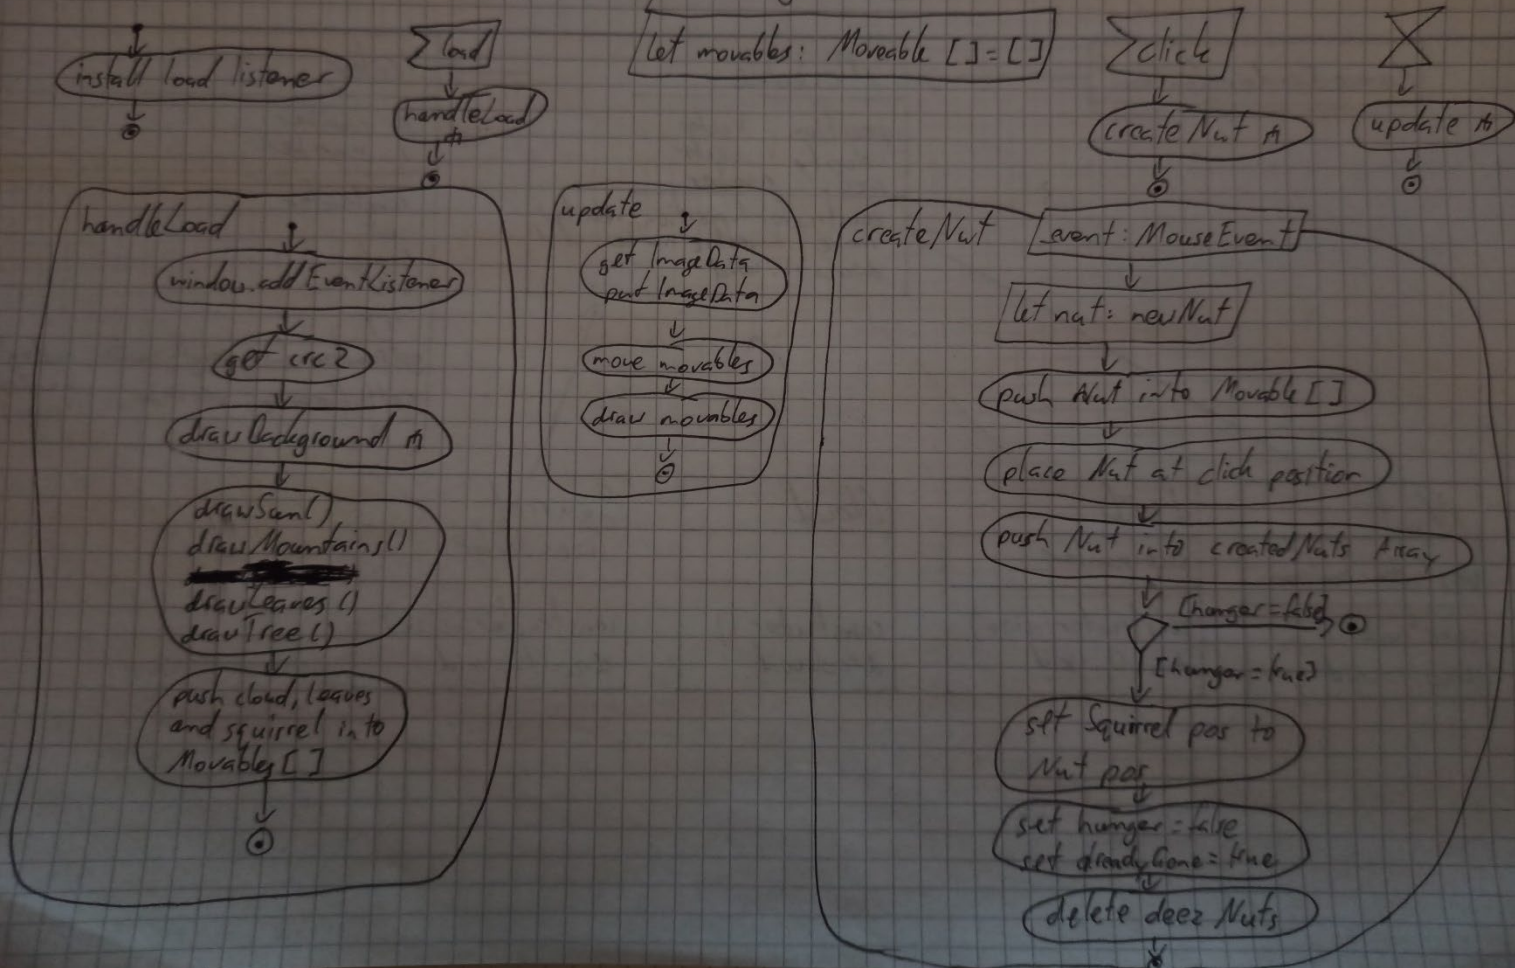 install load listener
load
handleLoad
let movables: Moveable [] = []
click
createNut
update
handleLoad
window.addEventListener
get crc2
drawBackground
drawSun()
drawMountains()
drawLeaves()
drawTree()
push cloud, leaves
and squirrel into
Movables []
update
get ImageData
put ImageData
move movables
draw movables
createNut
_event: MouseEvent
let nut: newNut
push Nut into Movable []
place Nut at click position
push Nut into createdNuts Array
[hunger = false]
[hunger = true]
set Squirrel pos to
Nut pos
set hunger = false
set alreadyGone = true
delete deez Nuts